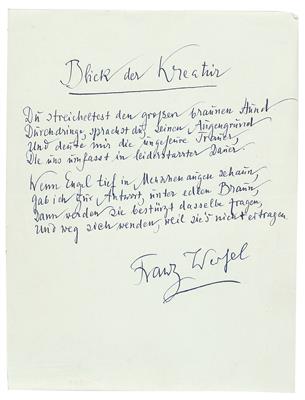 Blick der Kreatur
Du streicheltest den großen braunen Hund
Durchdringe, sprachst du, seinen Augengrund
Und deute mir die ungeheure Trauer
Die uns umfasst in leiderstarrter Dauer.
Wenn Engel tief in Menschenaugen schaun,
gab ich zur Antwort, unter edlen Braun,
Dann werden sie bestürzt dasselbe fragen,
Und weg sich wenden, weil sie's nicht ertragen
Franz Werfel